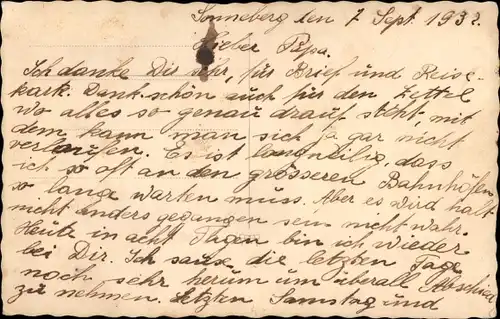 Sonneberg den 7 Sept. 1932.
Lieber Papa.
Ich danke Dir sehr, für Brief und Reise-
kart. Dank schön auch für den Zettel
wo alles so genau drauf steht, mit
dem kann man sich ja gar nicht
verlaufen. Es ist langweilig, dass
ich so oft an den grösseren Bahnhöfen
so lange warten muss. Aber es wird halt
nicht anders gegangen sein nicht wahr.
Heute in acht Tagen bin ich wieder
bei Dir. Ich sause die letzten Tage
noch sehr herum um überall Abschied
zu nehmen. Letzten Samstag und